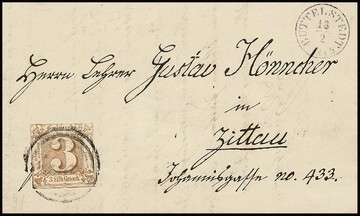 BUTTELSTEDT
13
2
Herrn Lehrer Gustav Hönncher
in
Zittau
Johannisgasse no. 433.
3
3 Silb. Grosch.